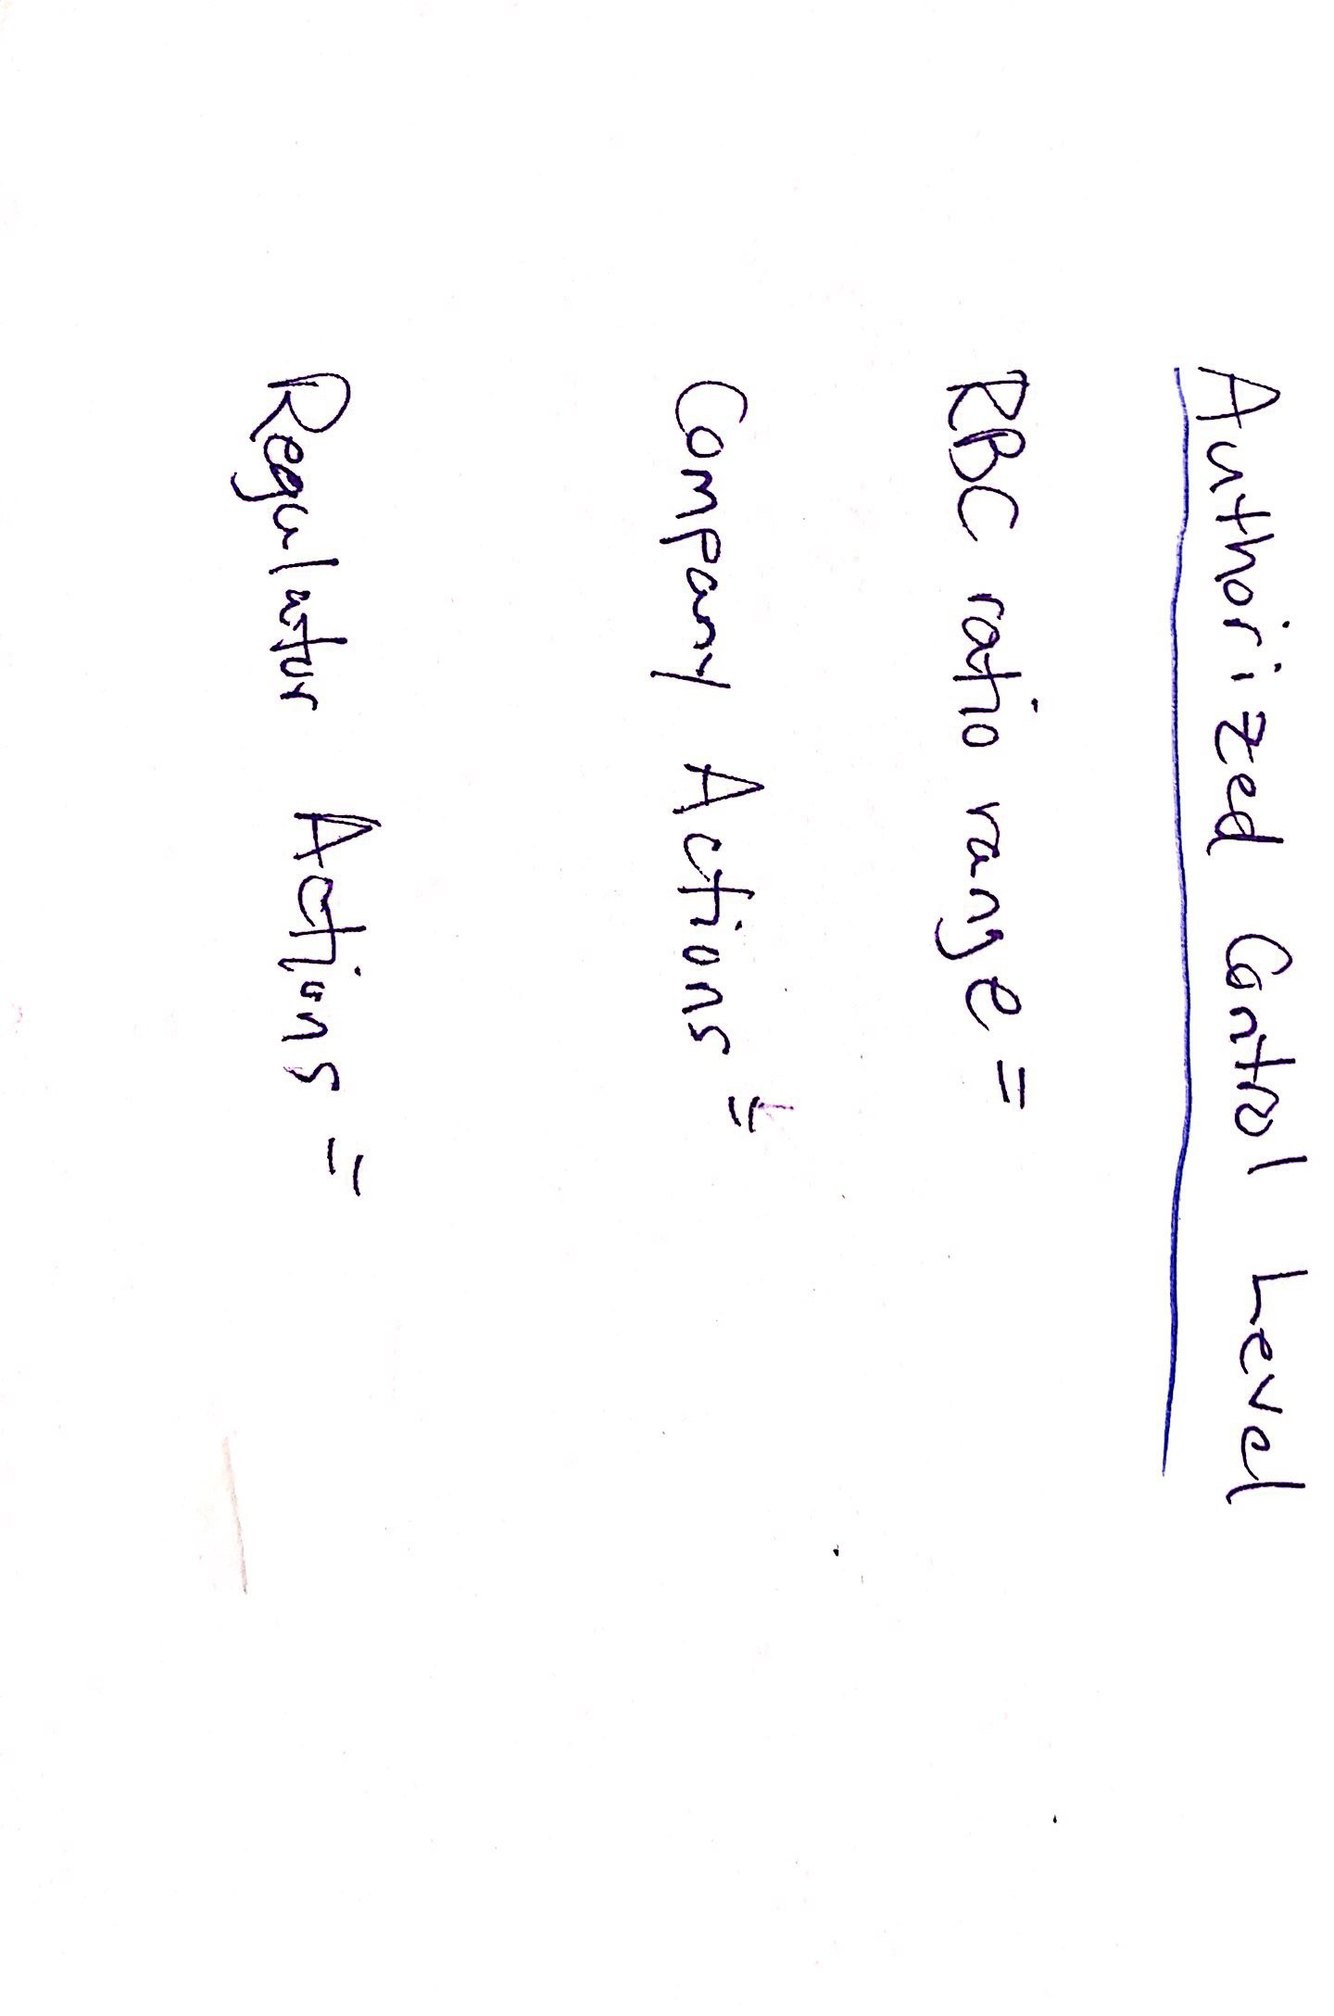 Authorized Control Level
RBC ratio range =
Company Actions =
Regulator Actions =